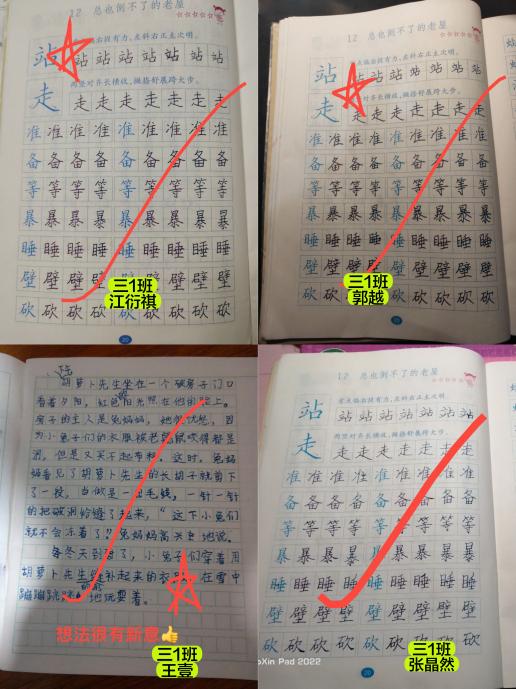 12 总也倒不了的老屋
站 站 站 站 站 站 站 站
偏右提有力,左斜右正主次明。
两竖对齐长横放,撇捺舒展跨大步。
走 走 走 走 走 走 走 走
准 准 准 准 准 准 准 准 准
备 备 备 备 备 备 备 备 备
等 等 等 等 等 等 等 等 等
暴 暴 暴 暴 暴 暴 暴 暴 暴
睡 睡 睡 睡 睡 睡 睡 睡 睡
壁 壁 壁 壁 壁 壁 壁 壁 壁
砍 砍 砍 砍 砍 砍 砍 砍 砍
三1班
江衍祺
20
12 总也倒不了的老屋
点偏右提有力,左斜右正主次明。
站 站 站 站 站 站 站 站
竖对齐长横放,撇捺舒展跨大步。
走 走 走 走 走 走 走 走
准 准 准 准 准 准 准 准 准
备 备 备 备 备 备 备 备 备
等 等 等 等 等 等 等 等 等
暴 暴 暴 暴 暴 暴 暴 暴 暴
睡 睡 睡 睡 睡 睡 睡 睡 睡
壁 壁 壁 壁 壁 壁 壁 壁 壁
砍 砍 砍 砍 砍 砍 砍 砍 砍
三1班
郭越
20
胡萝卜先生坐在一个破房子门口
看着夕阳,红色阳光照在他的脸上。
房子的主人是兔妈妈,她很忧愁,因
为小兔子们的衣服被老鼠咬得都是
洞,但是又买不起布料。这时,兔妈
妈看见了胡萝卜先生的长胡子就剪下
了一段,当做是一团毛线,一针一针
的把破洞给缝了起来,“这下小兔们
就不会冻着了?兔妈妈高兴地说。
每冬天到了,小兔子们穿着用
胡萝卜先生缝补起来的衣服,在雪中
蹦蹦跳跳地玩耍着。
想法很有新意👍
三1班
王壹
12 总也倒不了的老屋
首点偏右提有力,左斜右正主次明。
站 站 站 站 站 站 站 站
两竖对齐长横放,撇捺舒展跨大步。
走 走 走 走 走 走 走 走
准 准 准 准 准 准 准 准 准
备 备 备 备 备 备 备 备 备
等 等 等 等 等 等 等 等 等
暴 暴 暴 暴 暴 暴 暴 暴 暴
睡 睡 睡 睡 睡 睡 睡 睡 睡
壁 壁 壁 壁 壁 壁 壁 壁 壁
砍 砍 砍 砍 砍 砍 砍 砍 砍
oXin Pad 2022
三1班
张晶然
20